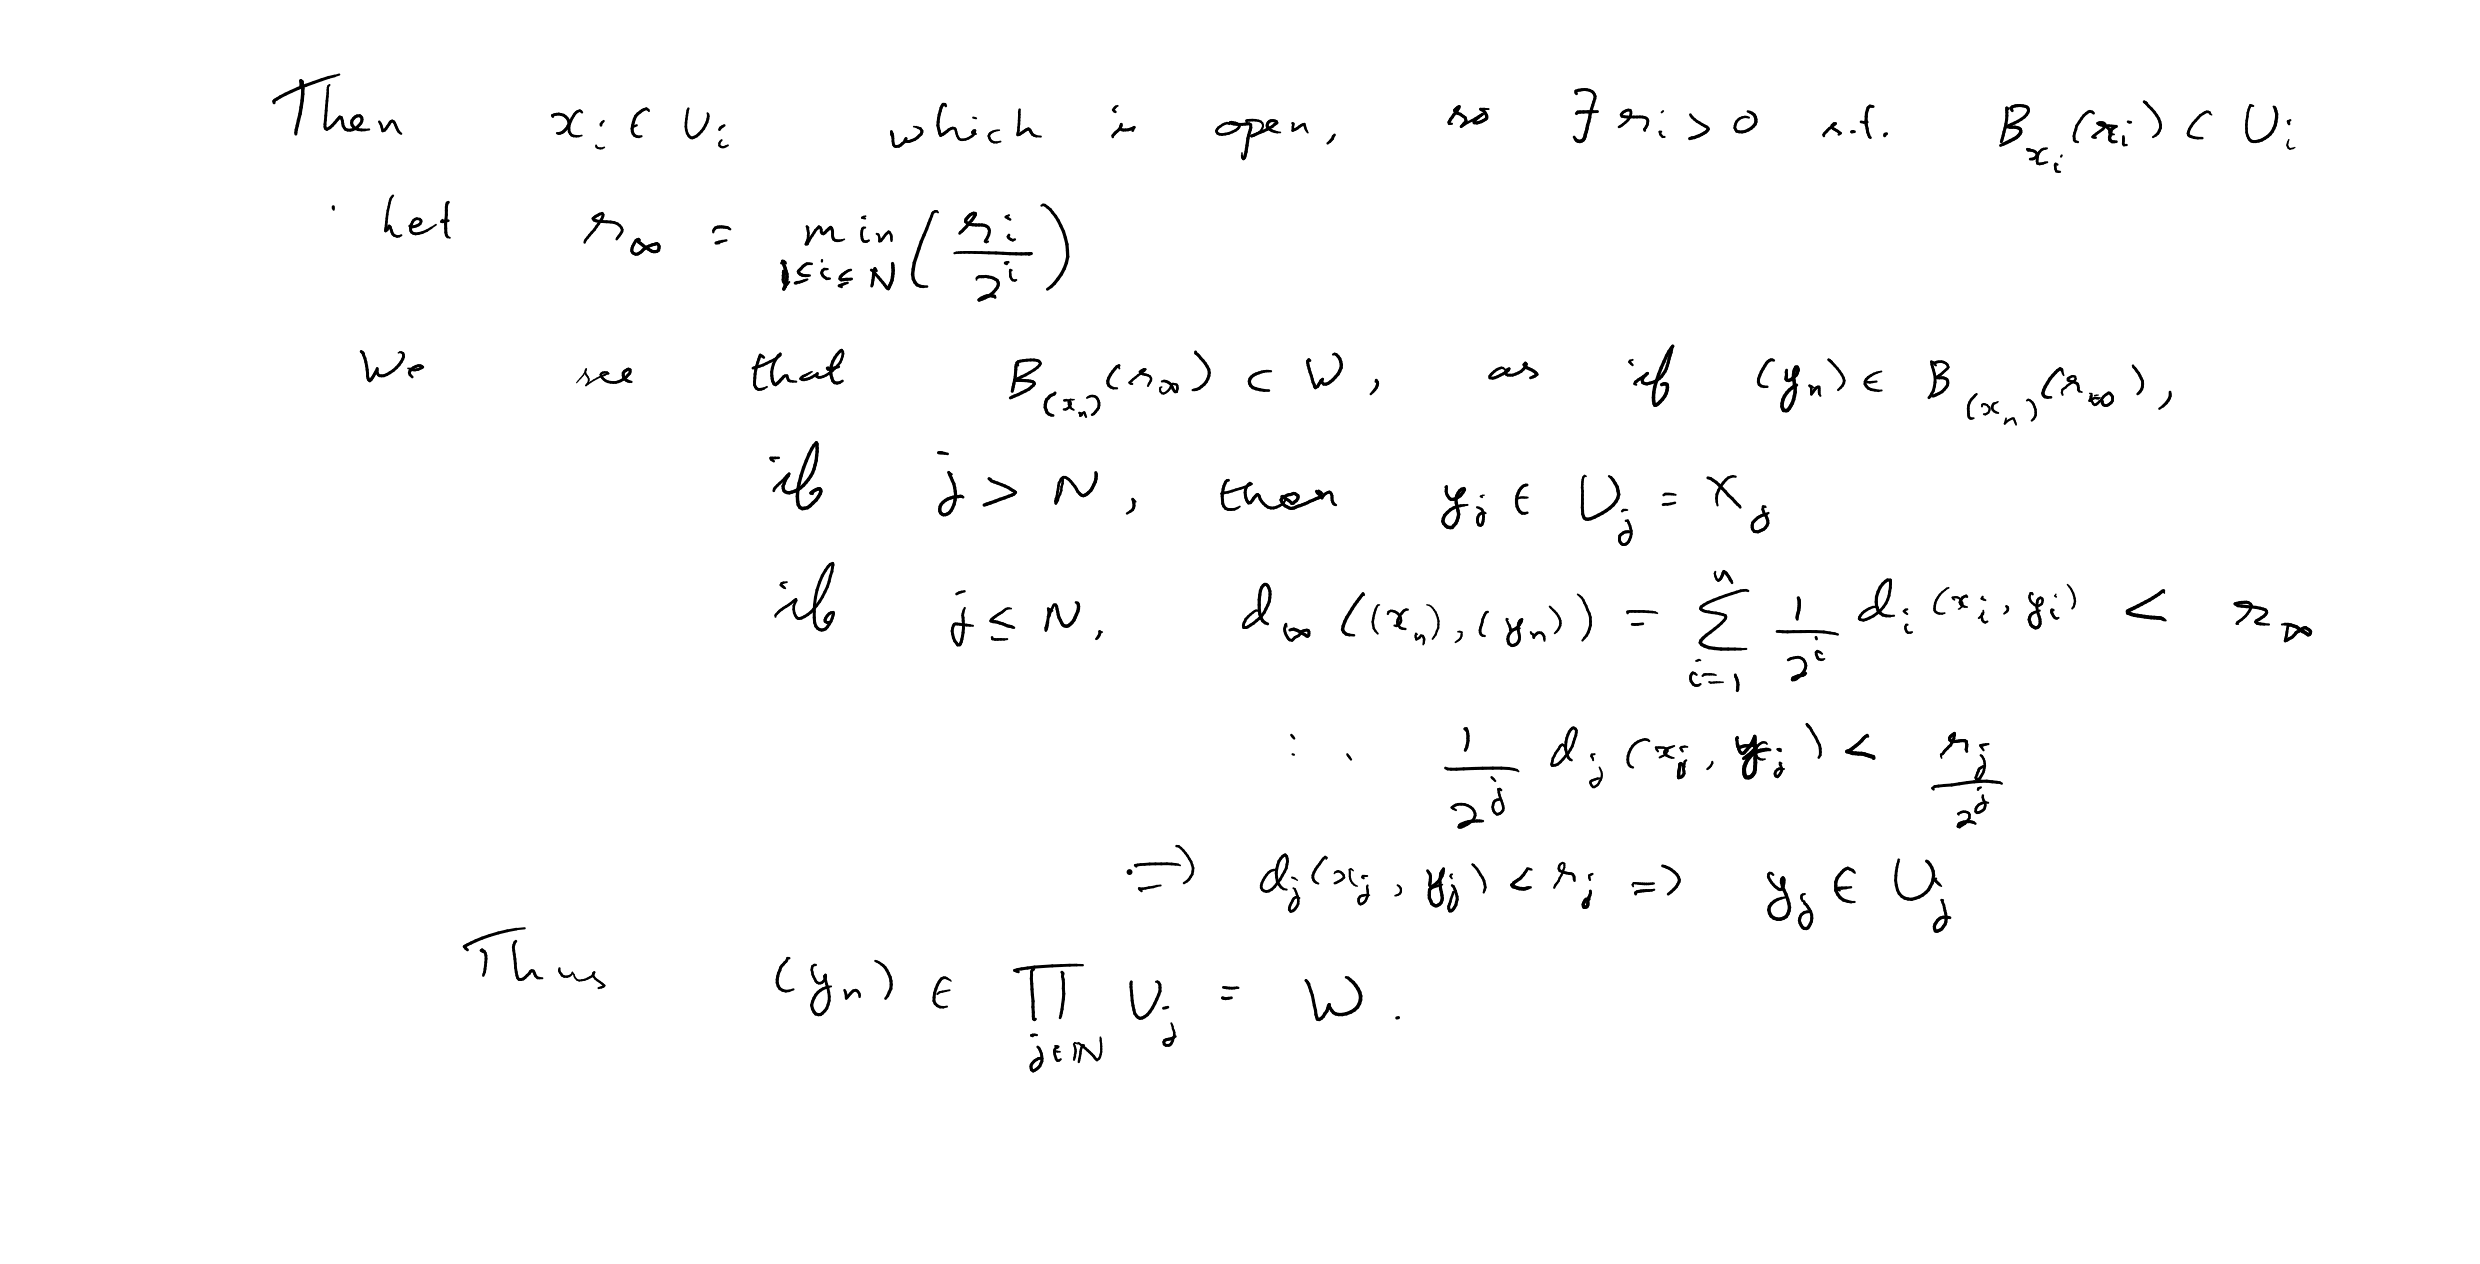 Then x_i ∈ U_i which is open, so ∃ r_i > 0 s.t. B_{x_i}(r_i) ⊂ U_i
. Let r_∞ = min_{1≤i≤N} (r_i / 2^i)
We see that B_{(x_n)}(r_∞) ⊂ W, as if (y_n) ∈ B_{(x_n)}(r_∞),
if j > N, then y_j ∈ U_j = X_j
if j ≤ N, d_∞((x_n), (y_n)) = ∑_{i=1}^{n} 1/2^i d_i(x_i, y_i) < r_∞
∴ 1/2^j d_j(x_j, y_j) < r_j / 2^j
⇒ d_j(x_j, y_j) < r_j ⇒ y_j ∈ U_j
Thus (y_n) ∈ ∏_{j∈ℕ} U_j = W.